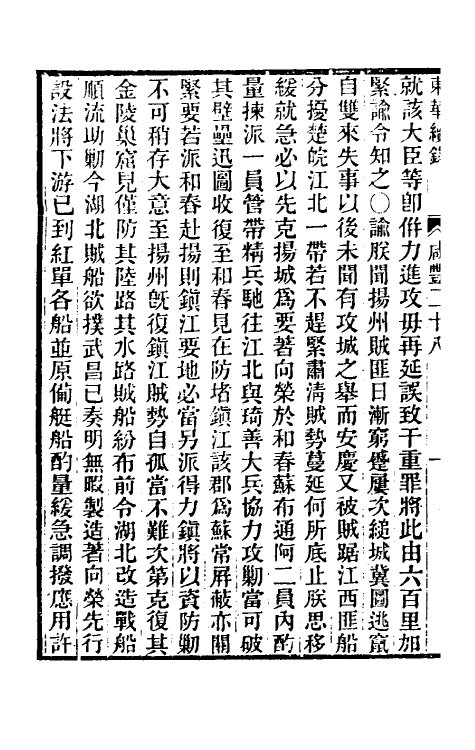 東華續錄 咸豐二十八 一
就該大臣等卽併力進攻毋再延誤致干重罪將此由六百里加
緊諭令知之○諭朕聞揚州賊匪日漸窮蹙屢次縋城冀圖逃竄
自雙來失事以後未聞有攻城之舉而安慶又被賊踞江西匪船
分擾楚皖江北一帶若不趕緊肅清賊勢蔓延何所底止朕思移
緩就急必以先克揚城爲要著向榮於和春蘇布通阿二員內酌
量揀派一員管帶精兵馳往江北與琦善大兵協力攻勦當可破
其壁壘迅圖收復至和春見在防堵鎭江該郡爲蘇常屛蔽亦關
緊要若派和春赴揚則鎭江要地必當另派得力鎭將以資防勦
不可稍存大意至揚州旣復鎭江賊勢自孤當不難次第克復其
金陵巢窟見僅防其陸路其水路賊船紛布前令湖北改造戰船
順流助勦今湖北賊船欲撲武昌已奏明無暇製造著向榮先行
設法將下游已到紅單各船並原僱艇船酌量緩急調撥應用許